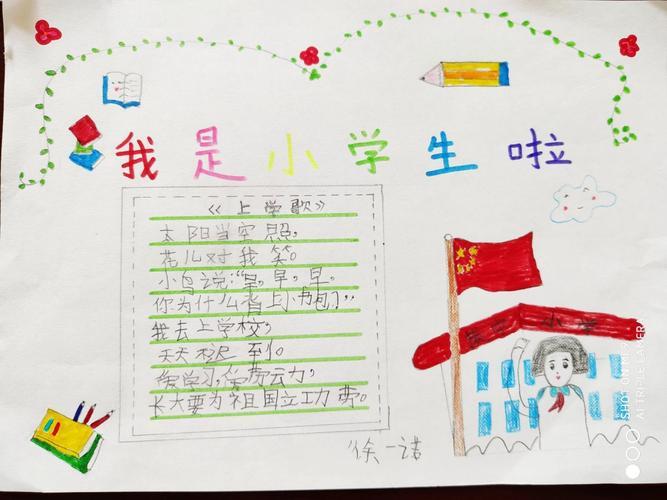 我是小学生啦
《上学歌》
太阳当空照,
花儿对我笑。
小鸟说:“早,早,早,
你为什么背上小书包?”
我去上学校,
天天不迟到。
爱学习,爱劳动,
长大要为祖国立功劳。
徐一诺
小
SHOT ON MI
AI TRIPLE CAMERA